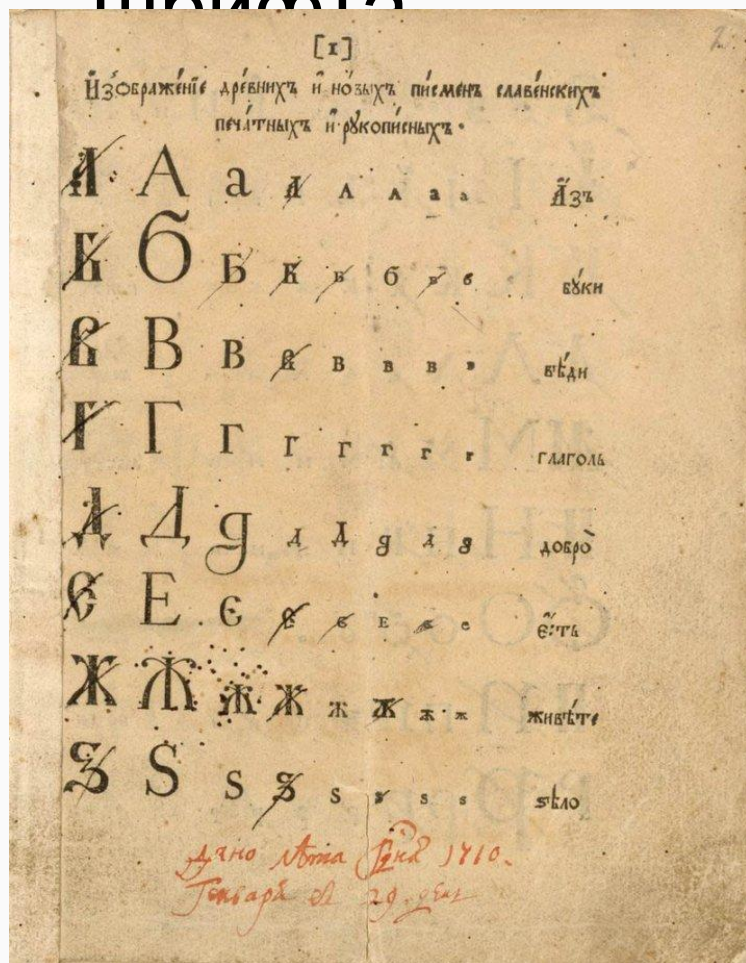 [1]
И҆зображе́нїе дре́внихъ и҆ но́выхъ пи́сменъ славе́нскихъ
печа́тныхъ и҆ рꙋкопи́сныхъ.
А А а А А А а а А҆́зъ
Б Б Б Б Б Б Б Б бꙋ́ки
В В В В В В В В вѣ́ди
Г Г Г Г Г Г Г Г глаголь
Д Д д Д Д д Д д добро̀
Є Е Є Є Є Е Є Є є҆́сть
Ж Ж Ж Ж Ж Ж Ж Ж живѣ́те
Ѕ Ѕ Ѕ Ѕ Ѕ Ѕ Ѕ Ѕ ѕѣло
Дано лѣта 1710.
Генваря 29. дня